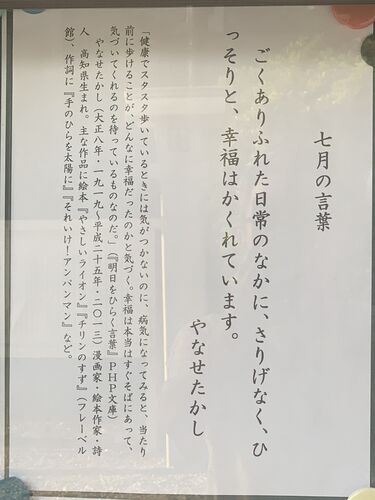 七月の言葉
ごくありふれた日常のなかに、さりげなく、ひ
っそりと、幸福はかくれています。
やなせたかし
「健康でスタスタ歩いているときには気がつかないのに、病気になってみると、当たり
前に歩けることが、どんなに幸福だったのかと気づく。幸福は本当はすぐそばにあって、
気づいてくれるのを待っているものなのだ。」(『明日をひらく言葉』PHP文庫)
やなせたかし(大正八年・一九一九〜平成二十五年・二〇一三)漫画家・絵本作家・詩
人、高知県生まれ。主な作品に絵本『やさしいライオン』『チリンのすず』(フレーベル
館)、作詞に『手のひらを太陽に』『それいけ!アンパンマン』など。